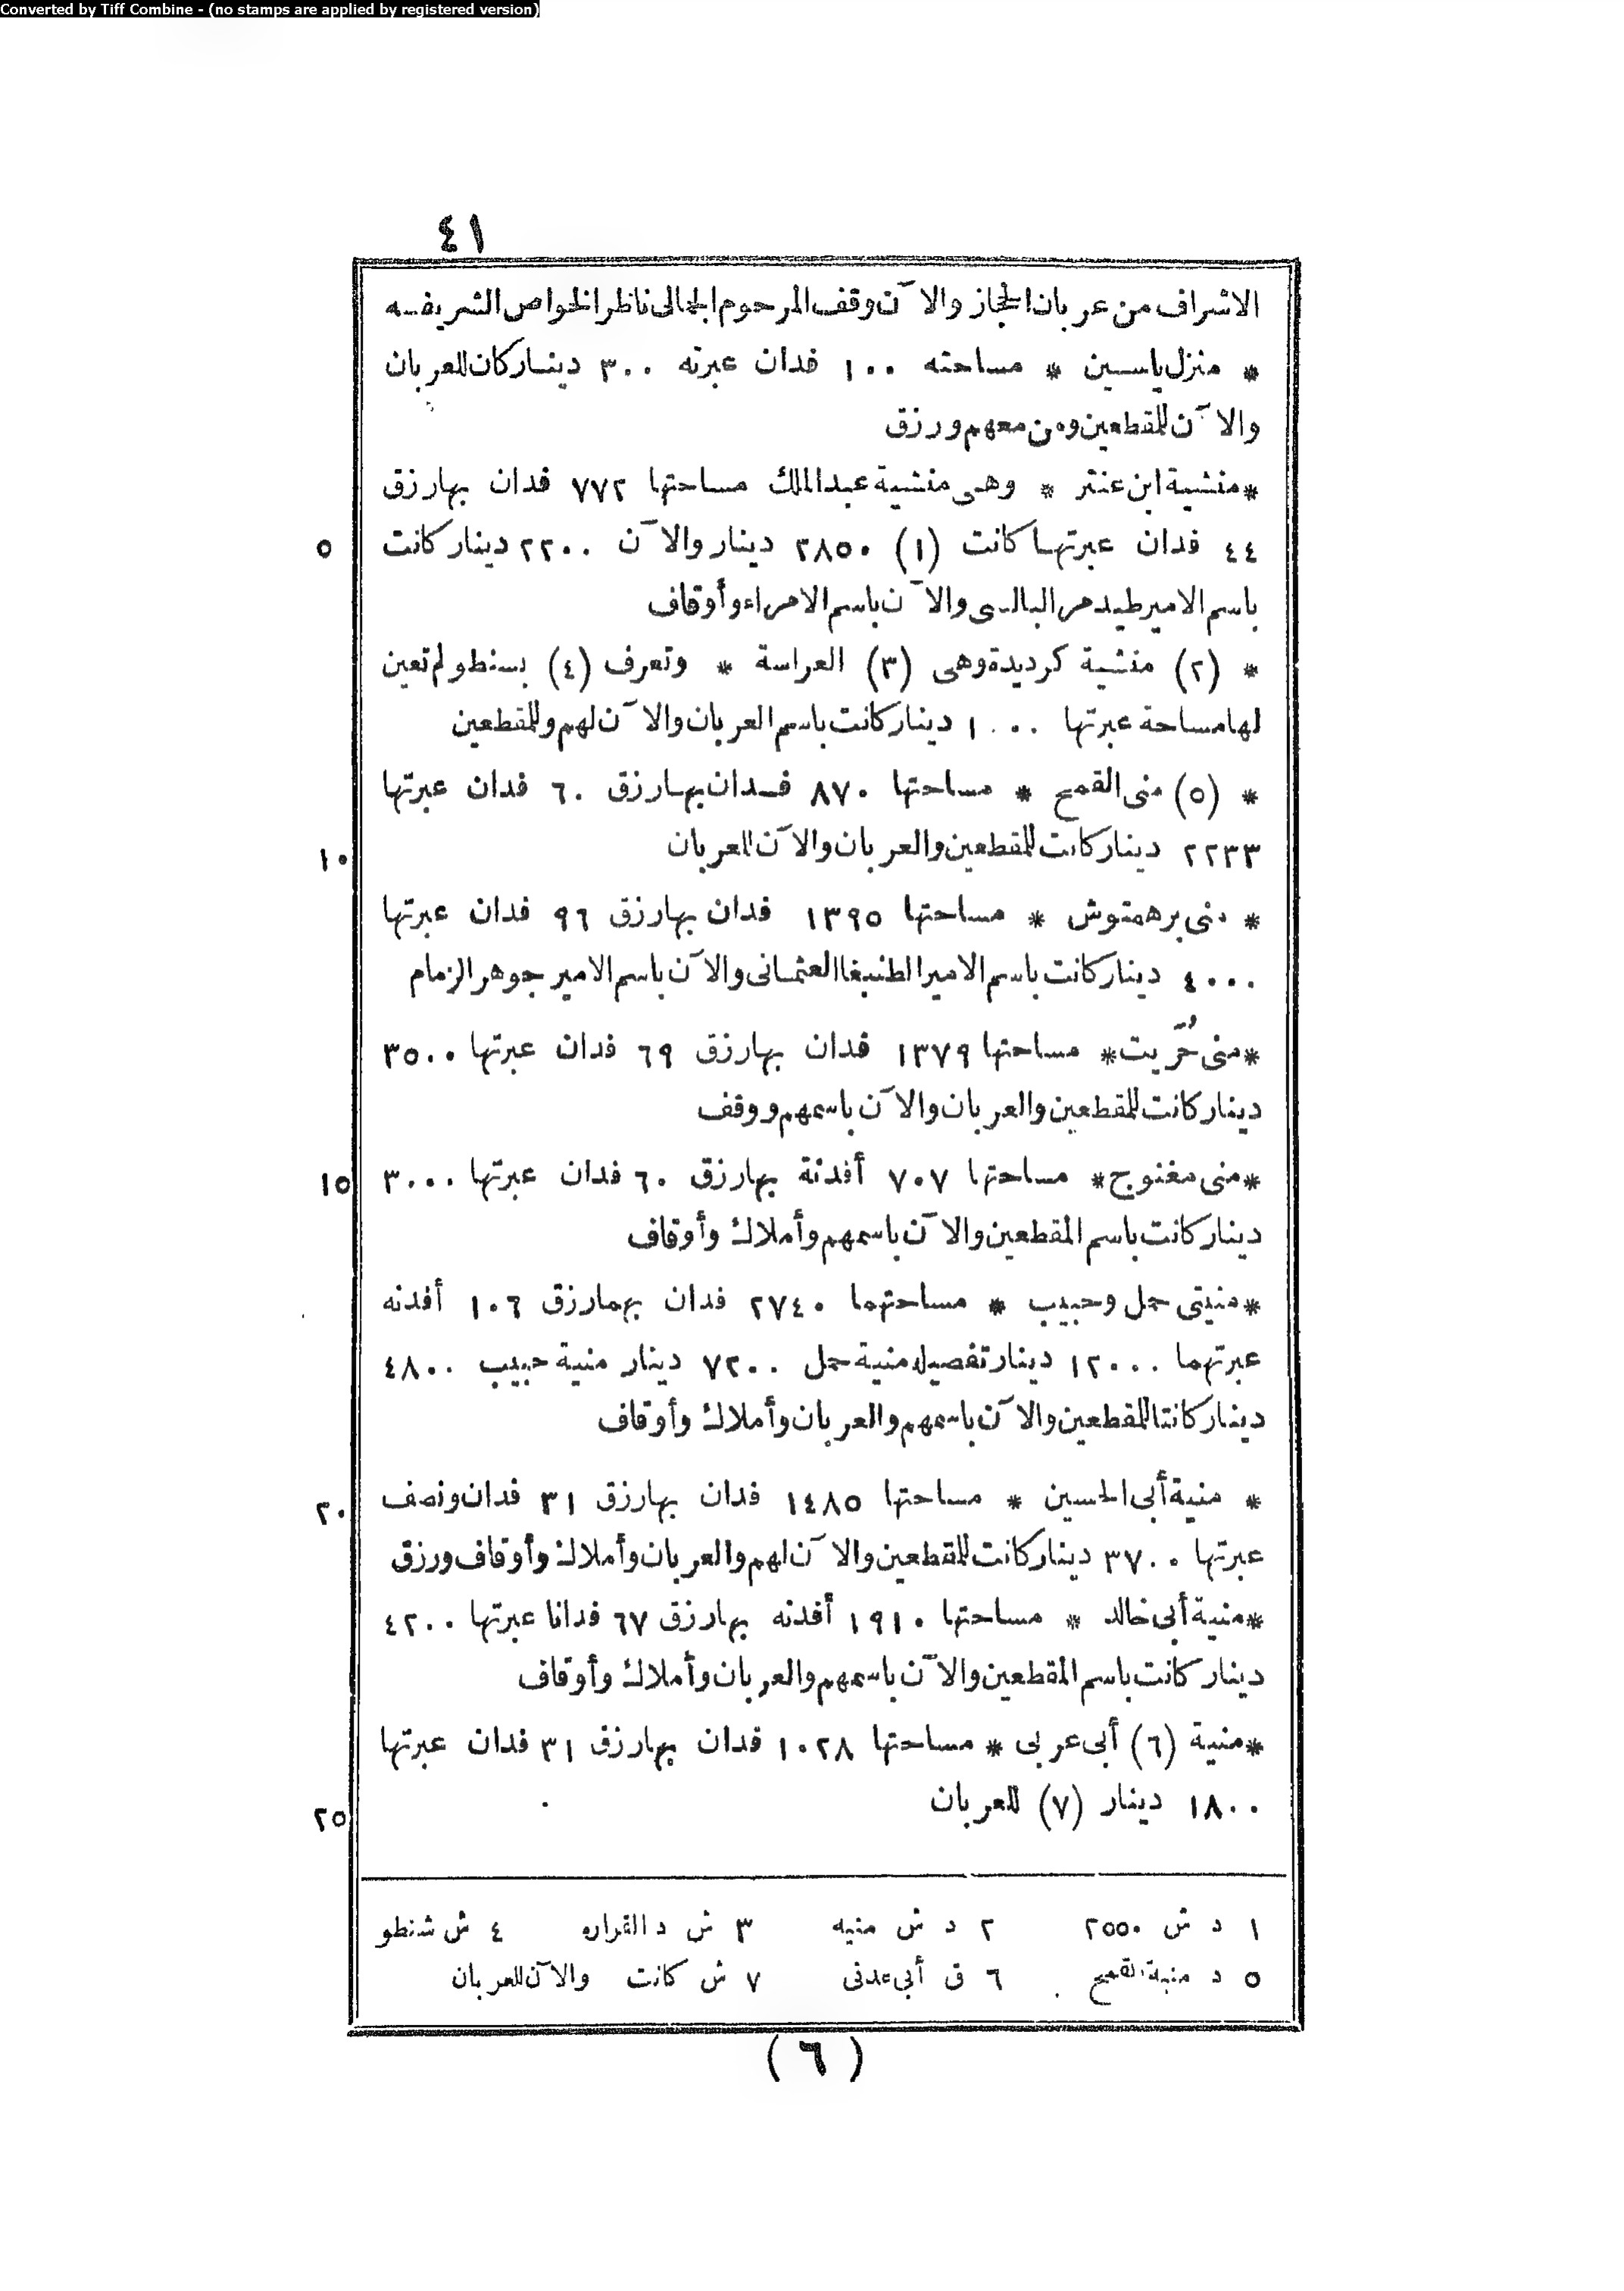 Converted by Tiff Combine - (no stamps are applied by registered version)
٤١
الاشراف من عربان الحجاز والآن وقف المرحوم الجمالى ناظر الخواص الشريفه
* منزل ياسين * مساحته ١٠٠ فدان عبرته ٣٠٠ دينار كان للعربان
والآن للمقطعين ومن معهم ورزق
* منشية ابن عنتر * وهى منشية عبد الملك مساحتها ٧٧٢ فدان بها رزق
٤٤ فدان عبرتها كانت (١) ٣٨٥٠ دينار والآن ٢٢٠٠ دينار كانت
٥
باسم الامير طيدمر البالسى والآن باسم الامراء وأوقاف
* (٢) منشية كرديدة وهى (٣) العراسة * وتعرف (٤) بسنطو لم تعين
لها مساحة عبرتها ١٠٠٠ دينار كانت باسم العربان والآن لهم وللمقطعين
* (٥) منى القمح * مساحتها ٨٧٠ فدان بها رزق ٦٠ فدان عبرتها
٢٢٣٣ دينار كانت للمقطعين والعربان والآن للعربان
١٠
* منى برهمتوش * مساحتها ١٣٩٥ فدان بها رزق ٩٦ فدان عبرتها
٤٠٠٠ دينار كانت باسم الامير الطنبغا العثمانى والآن باسم الامير جوهر الزمام
* منى حُرَّيت * مساحتها ١٣٧٩ فدان بها رزق ٦٩ فدان عبرتها ٣٥٠٠
دينار كانت للمقطعين والعربان والآن باسمهم ووقف
* منى مغنوج * مساحتها ٧٠٧ أفدنة بها رزق ٦٠ فدان عبرتها ٣٠٠٠
١٥
دينار كانت باسم المقطعين والآن باسمهم وأملاك وأوقاف
* منيتى حمل وحبيب * مساحتهما ٢٧٤٠ فدان بهما رزق ١٠٦ أفدنه
عبرتهما ١٢٠٠٠ دينار تفصيله منية حمل ٧٢٠٠ دينار منية حبيب ٤٨٠٠
دينار كانتا للمقطعين والآن باسمهم والعربان وأملاك وأوقاف
* منية أبى الحسين * مساحتها ١٤٨٥ فدان بها رزق ٣١ فدان ونصف
٢٠
عبرتها ٣٧٠٠ دينار كانت للمقطعين والآن لهم والعربان وأملاك وأوقاف ورزق
* منية أبى خالد * مساحتها ١٩١٠ أفدنه بها رزق ٦٧ فدانا عبرتها ٤٢٠٠
دينار كانت باسم المقطعين والآن باسمهم والعربان وأملاك وأوقاف
* منية (٦) أبى عربى * مساحتها ١٠٢٨ فدان بها رزق ٣١ فدان عبرتها
١٨٠٠ دينار (٧) للعربان
٢٥
١ د ش ٢٥٥٠ ٢ د ش منيه ٣ ش د القراره ٤ ش شنطو
٥ د منية القمح ٦ ق أبى عدنى ٧ ش كانت والآن للعربان
(٦)